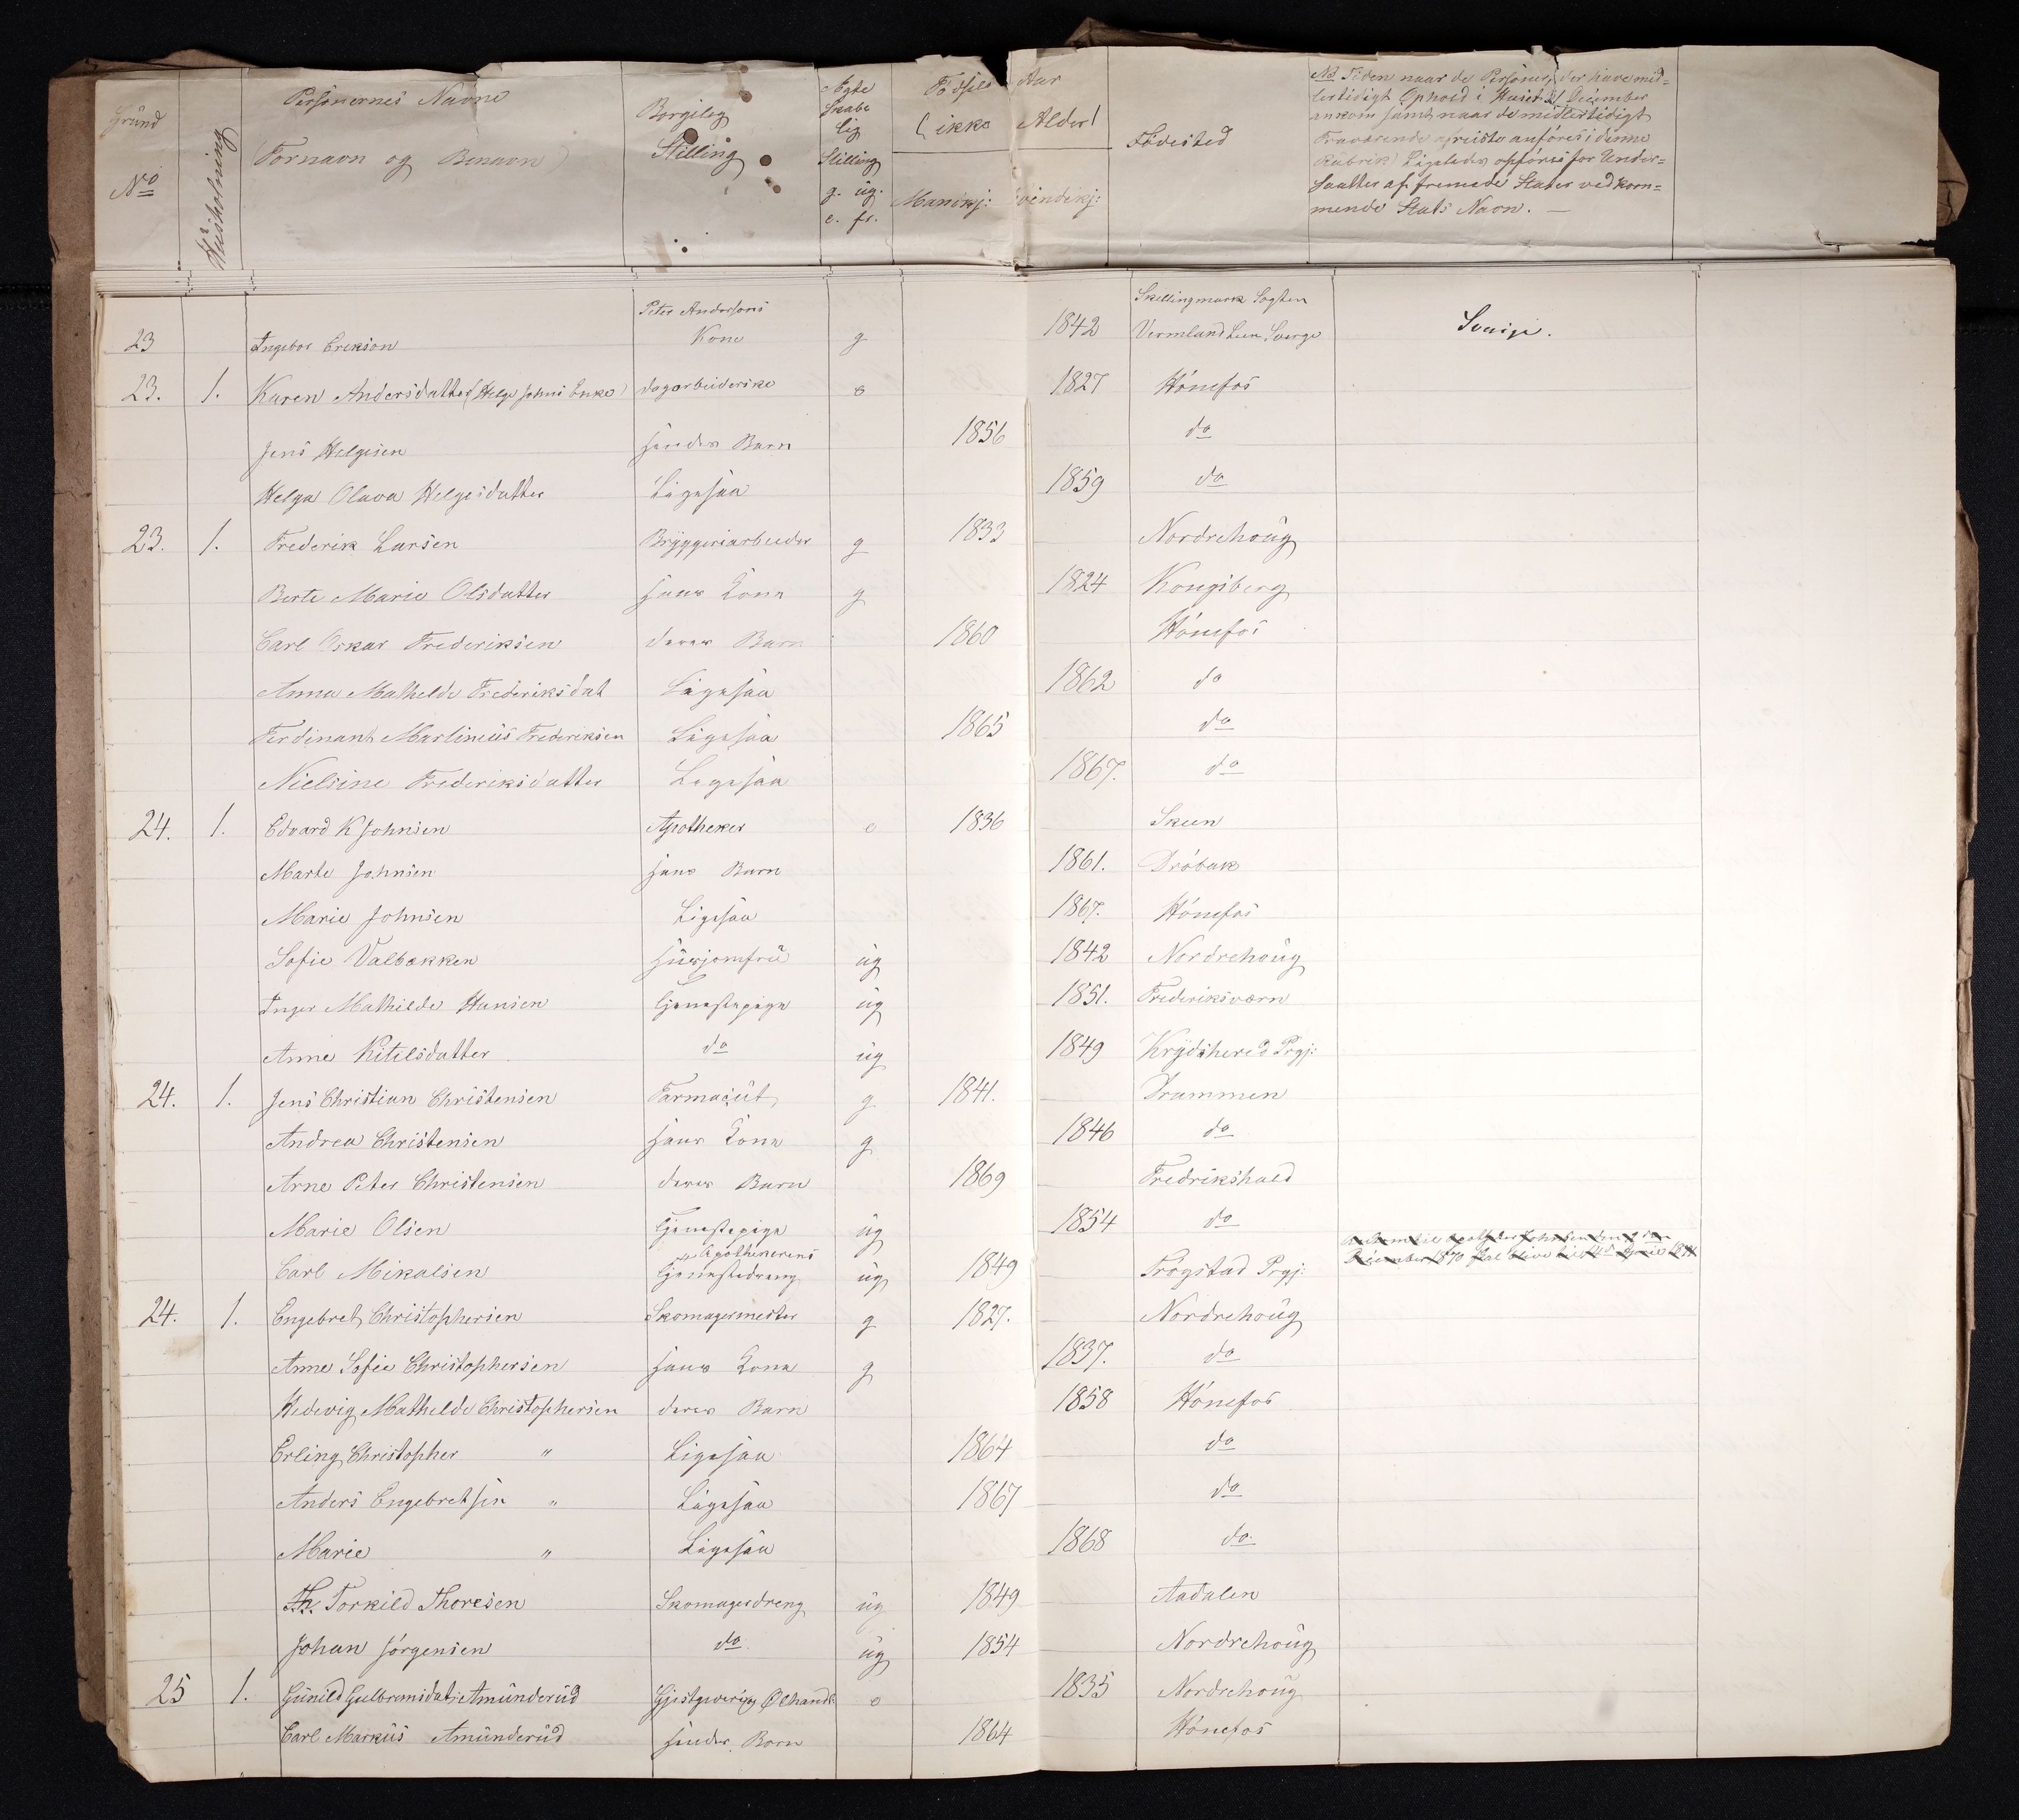 Grund
No
Husholning
Personernes Navne
(Fornavn og Benavn)
Borgileg
Stilling
Ægte
skabe
lig
Stilling
g. ug.
e. fr.
Fødsels Aar
(ikke Alder)
Mandkj: Kvindekj:
Fødested
NB Tiden naar de Personer, der have mid=
lertidigt Ophold i Huset 31 December
ankom samt naar de midlertidigt
Fraværende afreiste anføres i denne
Rubrik) Ligeledes opføres for Under=
saatter af fremede Stater vedkom=
mende Stats Navn. —
Peter Andersons Skillingmark Sogten
23 Ingebor Erekson Kone g 1842 Vermland Leen, Sverge Sverige.
23. 1. Karen Andersdatter (Helge Johns Enke) dagarbeiderske e 1827 Hónefos
Jens Helgesen hendes Barn 1856 do
Helga Olava Helgesdatter Ligesaa 1859 do
23. 1. Frederik Larsen Bryggeriarbeider g 1833 Nordrehoug
Berte Marie Olsdatter hans Kone g 1824 Kongsberg
Carl Oskar Frederiksen deres Barn 1860 Hónefos
Anna Mathelde Frederiksdat Ligesaa 1862 do
Ferdinant Martineus Frederiksen Ligesaa 1865 do
Nielsine Frederiksdatter Ligesaa 1867. do
24. 1. Edvard K Johnsen Apotheker e 1836 Skeen
Marte Johnsen hans Barn 1861. Dróbak
Marie Johnsen Ligesaa 1867. Hónefos
Sofie Valbakken Husjomfru ug 1842 Nordrehoug
Inger Mathilde Hansen Tjenestepige ug 1851. Frederiksværn
Anne Kitelsdatter do ug 1849 Krydshered Prgj:
24. 1. Jens Christian Christensen Farmaceut g 1841. Drammen
Andrea Christensen hans Kone g 1846 do
Arne Peter Christensen deres Barn 1869 Fredrikshald
Marie Olsen Tjenestepige ug 1854 do
Apothekerens
Carl Mikalsen Tjenestedreng ug 1849 Trogstad Prgj:
24. 1. Engebret Christophersen Skomagermester g 1827. Nordrehoug
Anne Sofie Christophersen hans Kone g 1837. do
Hedevig Mathelde Christophersen deres Barn 1858 Hónefos
Erling Christopher " Ligesaa 1864 do
Anders Engebretsen " Ligesaa 1867 do
Marie " Ligesaa 1868 do
Th. Torkild Thoresen Skomagerdreng ug 1849 Aadalen
Johan Jórgensen do ug 1854 Nordrehoug
25 1. Gunild Gulbransdat: Amunderud Gjestgiveri og Ølhandl e 1835 Nordrehoug
Carl Markus Amunderud hendes Barn 1864 Hónefos